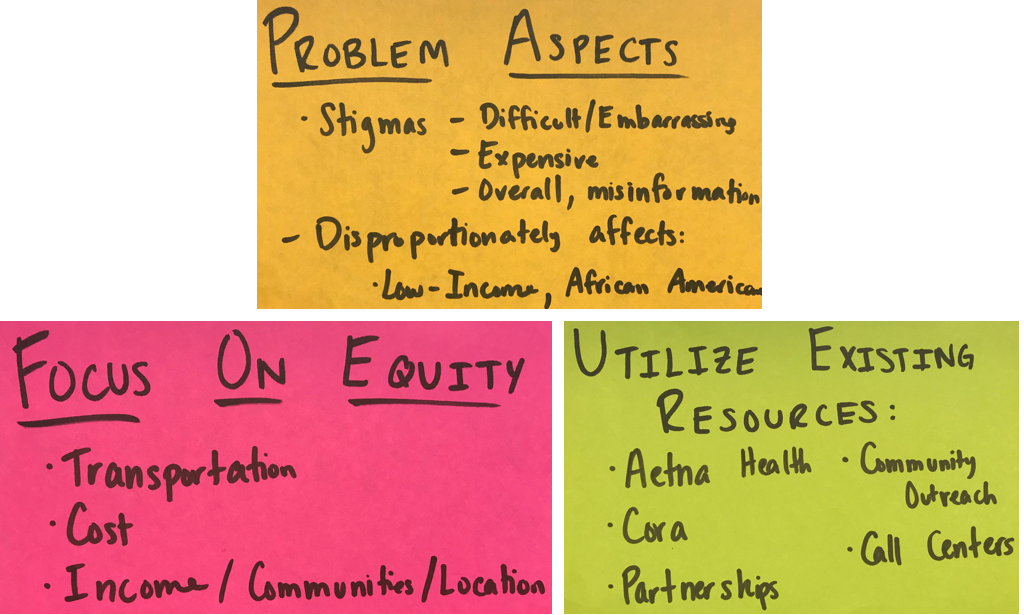 PROBLEM ASPECTS
· Stigmas – Difficult/Embarrassing
– Expensive
– Overall, misinformation
– Disproportionately affects:
· Low-Income, African American
FOCUS ON EQUITY
· Transportation
· Cost
· Income/Communities/Location
UTILIZE EXISTING
RESOURCES:
· Aetna Health
· Cora
· Partnerships
· Community
Outreach
· Call Centers